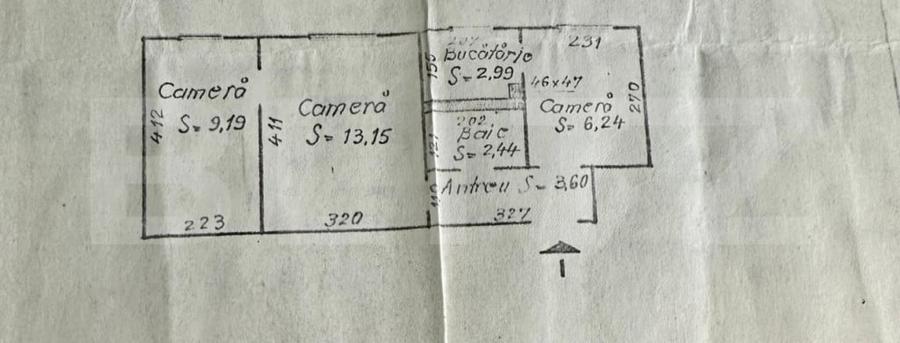 Cameră
S= 9,19
412
223
Cameră
S= 13,15
411
320
Bucătărie
S= 2,99
155
46x47
231
270
Cameră
S= 6,24
202
Baie
S= 2,44
121
Antreu S= 3,60
110
327
I